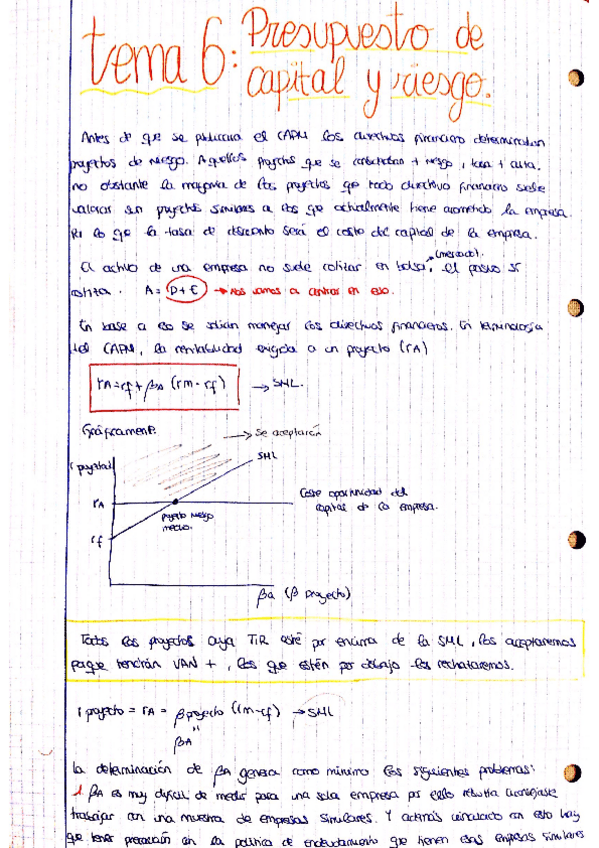 tema 6: Presupuesto de
capital y riesgo.
Antes de que se publicara el CAPM los directivos financieros determinaban
proyectos de riesgo. Aquellos proyectos que se + riesgo, tasa + alta.
no obstante la mayoría de los proyectos que todo directivo financiero suele
valorar son proyectos similares a los que actualmente tiene acometido la empresa.
Por lo que la tasa de descuento será el coste del capital de la empresa.
(mercado).
El activo de una empresa no suele cotizar en bolsa, el pasivo sí
cotiza. A = D+E → nos vamos a centrar en eso.
En base a eso se solían manejar los directivos financieros. En terminología
del CAPM, la rentabilidad exigida a un proyecto (rA)
rA = rf + βA (rm - rf) → SML.
Gráficamente.
→ se aceptarán
SML
r proyecto
rA
Coste oportunidad del
capital de la empresa.
proyecto riesgo
medio.
rf
βa (β proyecto)
Todos los proyectos cuya TIR esté por encima de la SML, los aceptaremos
porque tendrán VAN +, los que estén por debajo los rechazaremos.
r proyecto = rA = β proyecto (rm - rf) → SML
"
βA
la determinación de βA genera como mínimo los siguientes problemas:
1 βA es muy difícil de medir para una sola empresa por ello aconsejable
trabajar con una muestra de empresas similares. Y además vinculado con esto hay
que tener precaución en la política de endeudamiento que tienen esas empresas similares